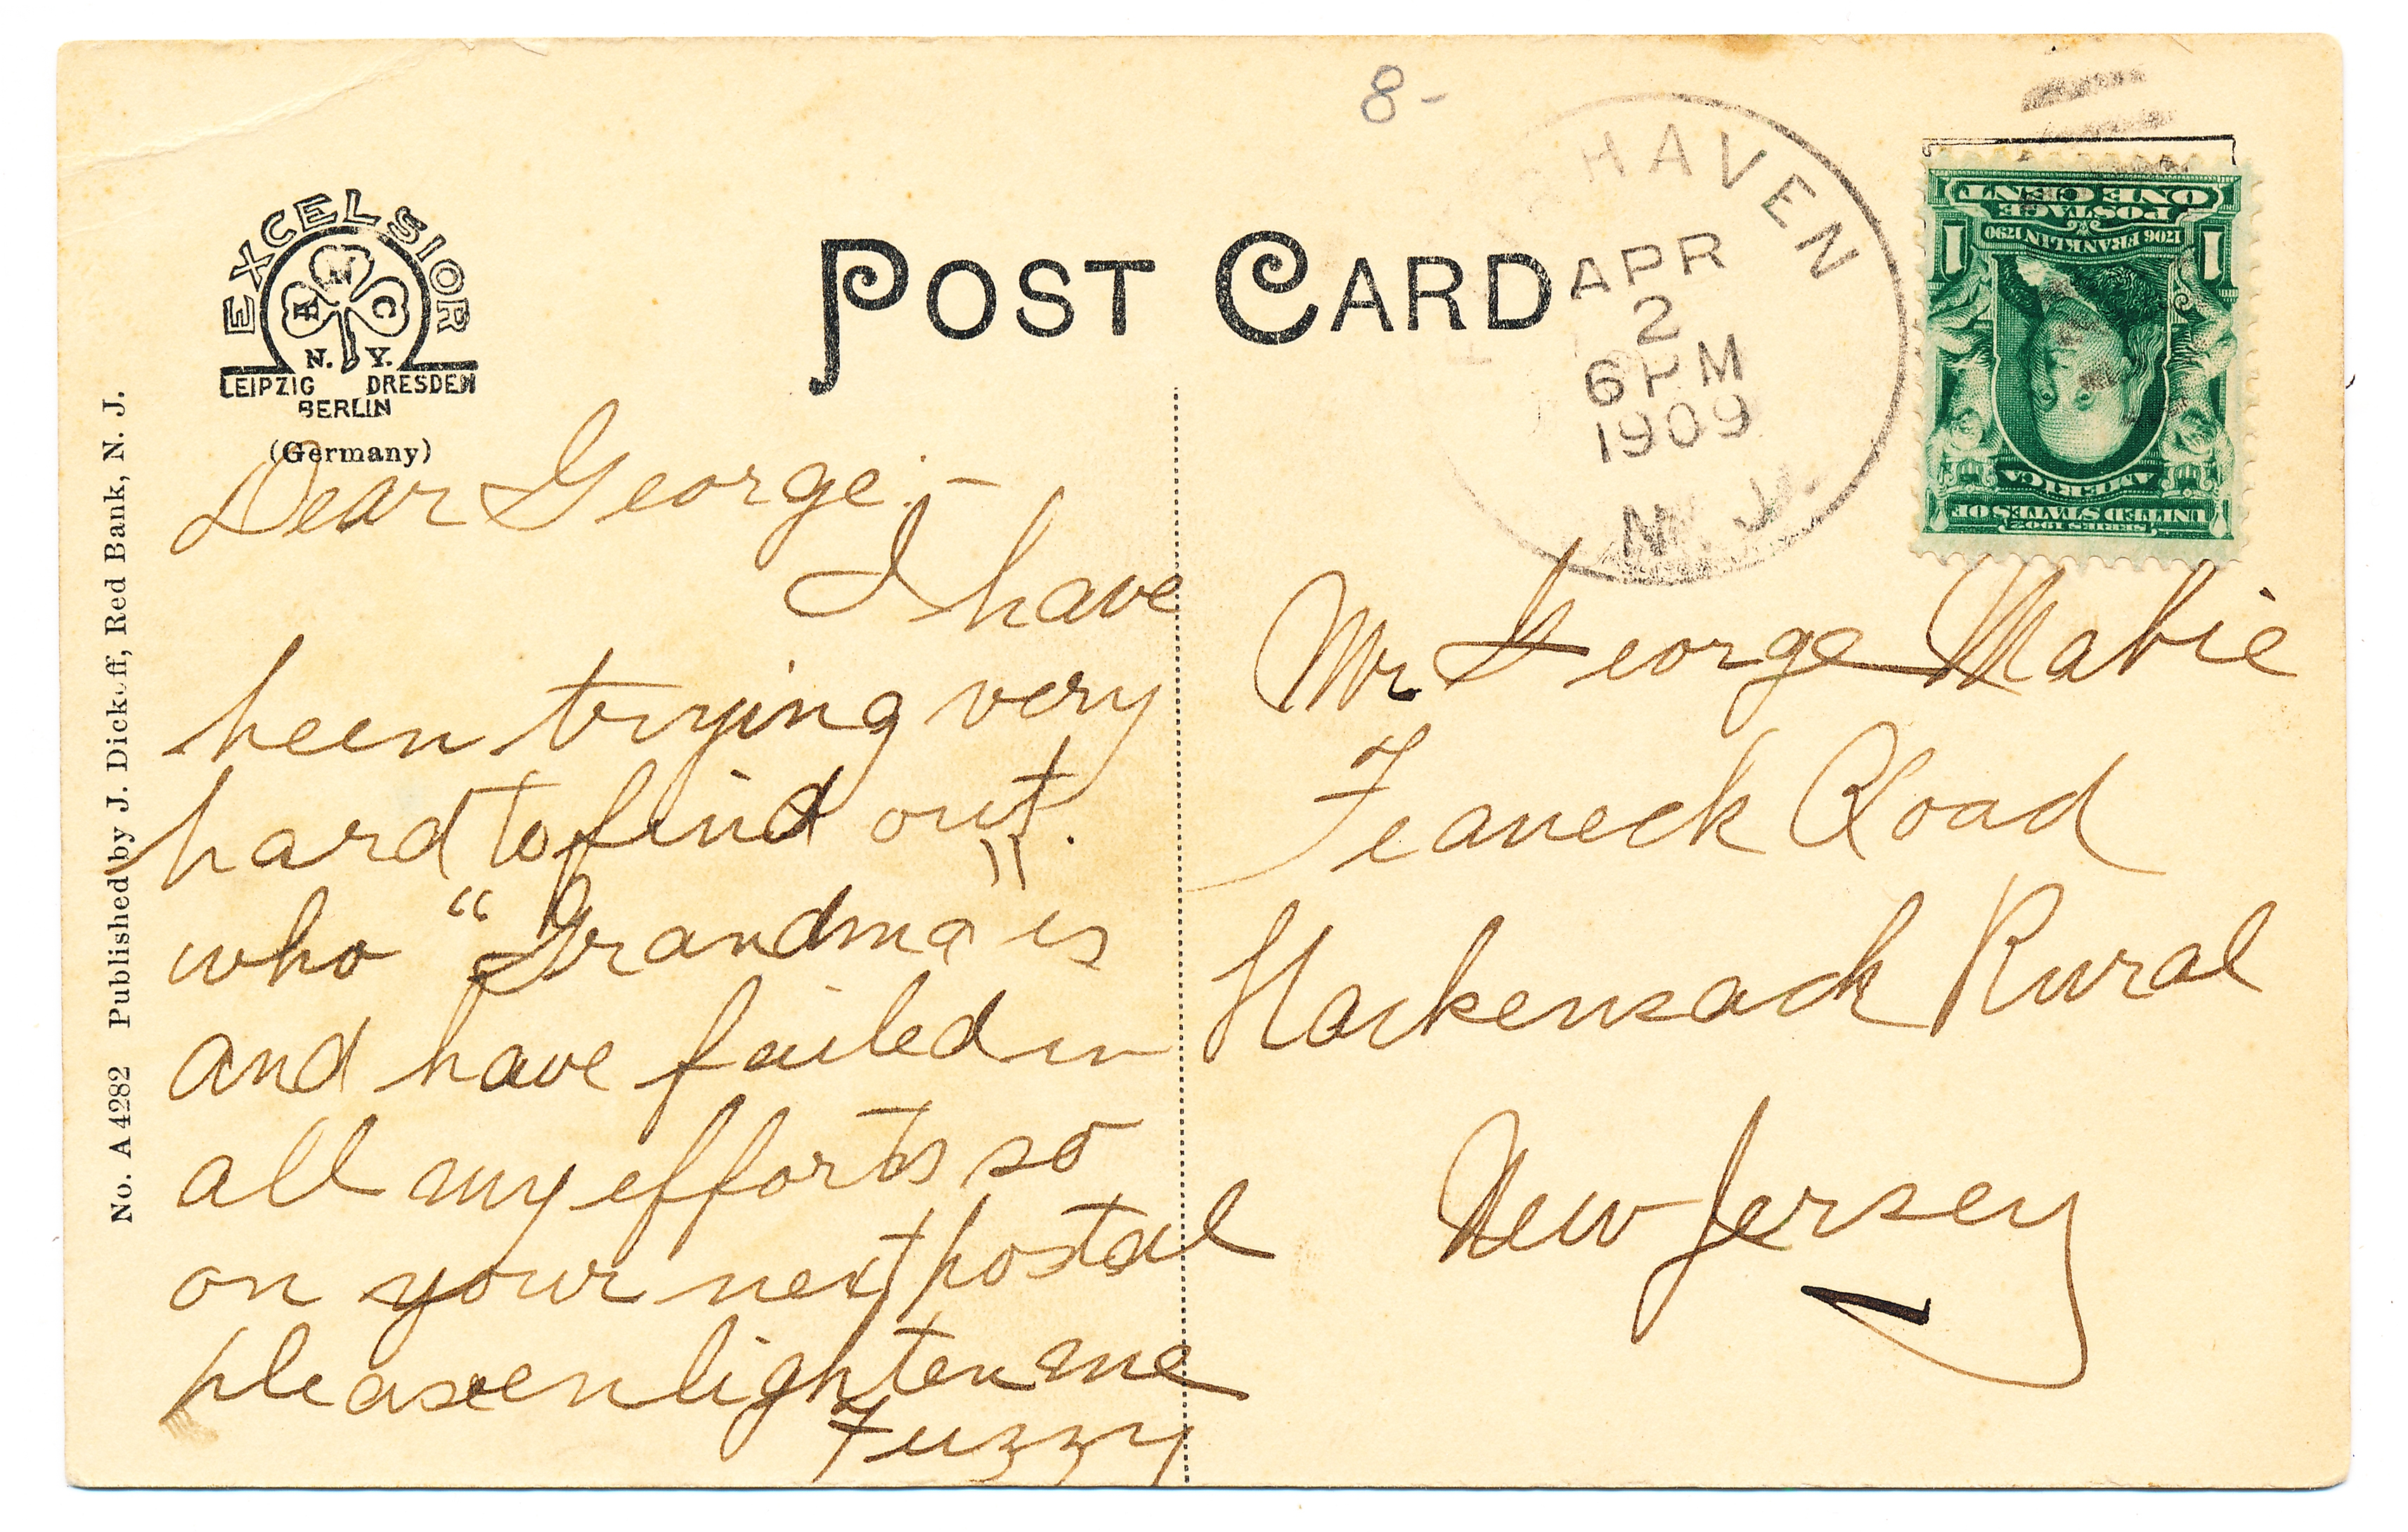 8-
HAVEN
APR
2
6 PM
1909
N. J.
ONE CENT
POSTAGE
1706 FRANKLIN 1790
1 1
AMERICA
UNITED STATES OF
SERIES 1902
EXCELSIOR
N. Y.
LEIPZIG DRESDEN
BERLIN
(Germany)
POST CARD
No. A 4282 Published by J. Dickoff, Red Bank, N. J.
Dear George:-
I have
been trying very
hard to find out.
who "Grandma" is
and have failed in
all my efforts so
on your next postal
please enlighten me
Fuzzy
Mr George Mabie
Teaneck Road
Hackensack Rural
New Jersey